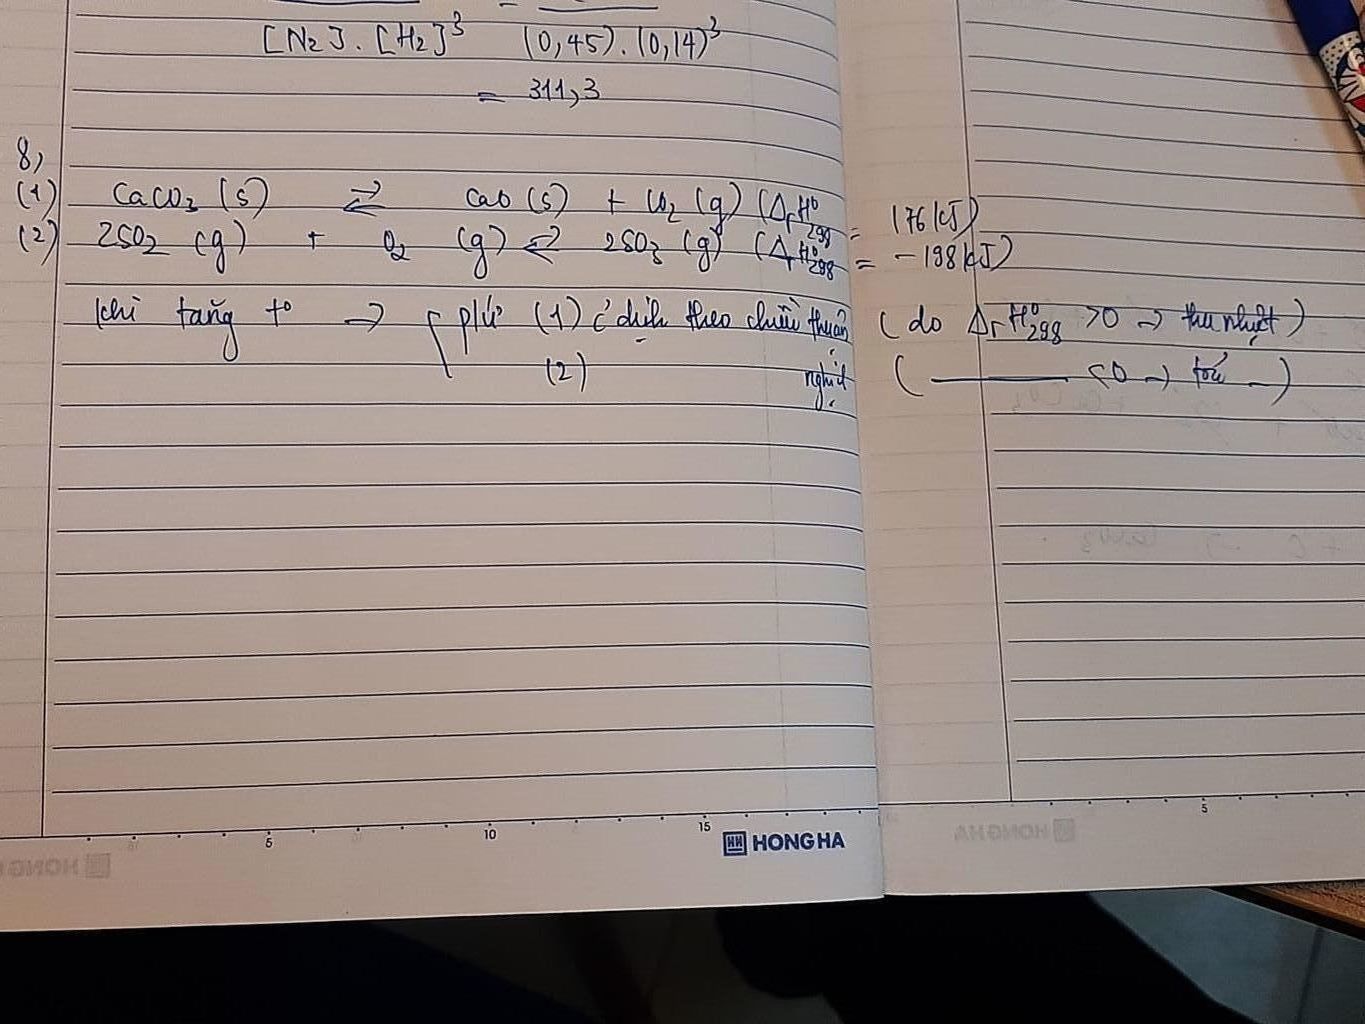 [N₂] . [H₂]³ = (0,45) . (0,14)³
= 311,3
8,
(1) CaCO₃ (s) ⇌ CaO (s) + CO₂ (g) (ΔᵣH⁰₂₉₈ = 176 kJ)
(2) 2SO₂ (g) + O₂ (g) ⇌ 2SO₃ (g) (ΔᵣH⁰₂₉₈ = -198 kJ)
khi tăng t⁰ → { pứ (1) c' dịch theo chiều thuận (do ΔᵣH⁰₂₉₈ >0 → thu nhiệt)
(2) nghịch ( ——— <0 → toả — )
5 10 15 5
HONG HA